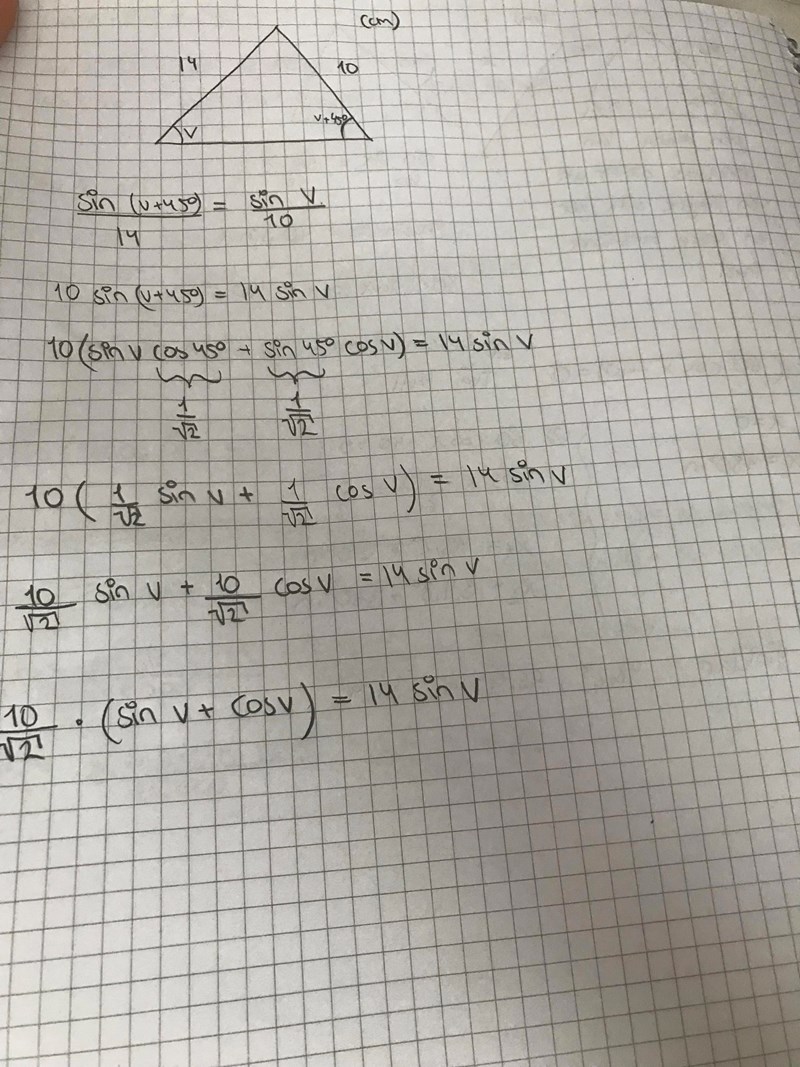 (cm)
14 10
v v+45°
sin (v+45°)/14 = sin v/10
10 sin(v+45°) = 14 sin v
10(sin v cos 45° + sin 45° cos v) = 14 sin v
1/√2 1/√2
10 ( 1/√2 sin v + 1/√2 cos v) = 14 sin v
10/√2 sin v + 10/√2 cos v = 14 sin v
10/√2 · (sin v + cos v) = 14 sin v